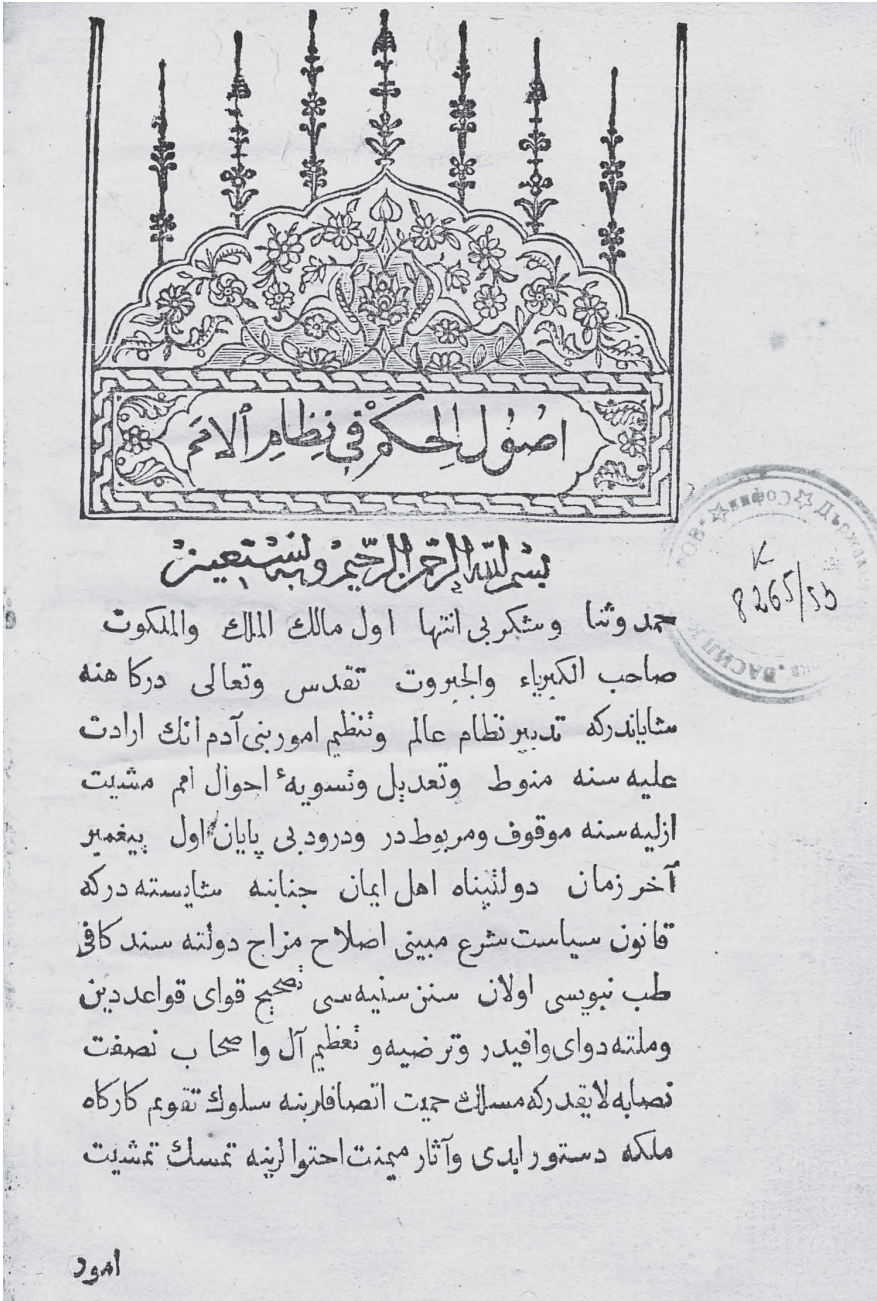 اصول الحكم في نظام الامم
بسم الله الرحمن الرحيم وبه نستعين
حمد وثنا وشكر بى انتها اول مالك الملك والملكوت
صاحب الكبرياء والجبروت تقدس وتعالى دركاهنه
شاياندركه تدبير نظام عالم وتنظيم امور بنى آدم انك ارادت
عليه سنه منوط وتعديل وتسويهٔ احوال امم مشيت
ازليه سنه موقوف ومربوط در ودرود بى پايان اول پيغمبر
آخر زمان دولتپناه اهل ايمان جنابنه شايسته دركه
قانون سياست شرع مبينى اصلاح مزاج دولته سند كافى
طب نبويسى اولان سنن سنيه سى تصحيح قواى قواعد دين
وملته دواى وافيدر وترضيه و تعظيم آل واصحاب نصفت
نصابه لايقدركه مسلك حميت اتصافلرينه سلوك تقويم كاركاه
ملكه دستور ابدى وآثار ميمنت احتوالرينه تمسك تمشيت
امور
★ София ★ Държавна
ВАСИЛ К
К
8265/53